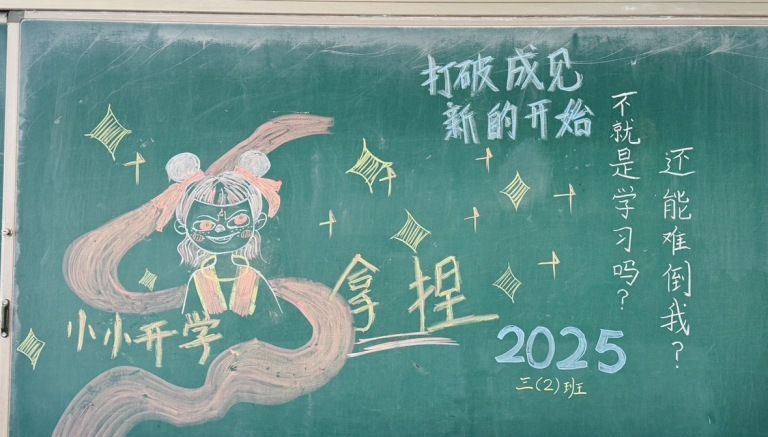 打破成见
新的开始
不就是学习吗？
还能难倒我？
小小开学
拿捏
2025
三(2)班